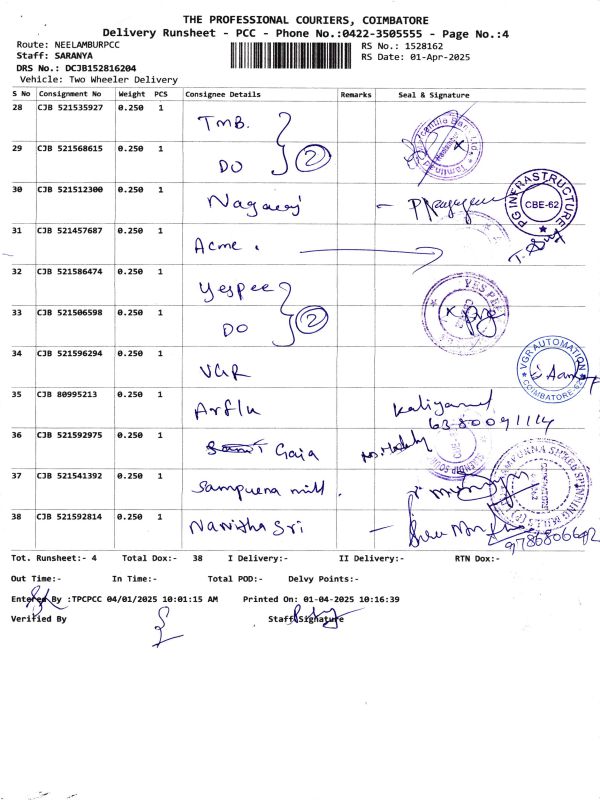 THE PROFESSIONAL COURIERS, COIMBATORE
Delivery Runsheet - PCC - Phone No.:0422-3505555 - Page No.:4
Route: NEELAMBURPCC
RS No.: 1528162
Staff: SARANYA
RS Date: 01-Apr-2025
DRS No.: DCJB152816204
Vehicle: Two Wheeler Delivery
S No Consignment No Weight PCS Consignee Details Remarks Seal & Signature
28 CJB 521535927 0.250 1 TMB.
29 CJB 521568615 0.250 1 DO 2
30 CJB 521512300 0.250 1 Nagaraj
PG INFRASTRUCTURE CBE-62
31 CJB 521457687 0.250 1 Acme.
32 CJB 521586474 0.250 1 Yespee
33 CJB 521506598 0.250 1 DO 2
34 CJB 521596294 0.250 1 VGR
VGR AUTOMATION COIMBATORE-62
35 CJB 80995213 0.250 1 Arflu
36 CJB 521592975 0.250 1 Gaia
37 CJB 521541392 0.250 1 Sampurna mill.
38 CJB 521592814 0.250 1
Tot. Runsheet:- 4 Total Dox:- 38 I Delivery:- II Delivery:- RTN Dox:-
Out Time:- In Time:- Total POD:- Delvy Points:-
Entered By :TPCPCC 04/01/2025 10:01:15 AM Printed On: 01-04-2025 10:16:39
Verified By Staff Signature